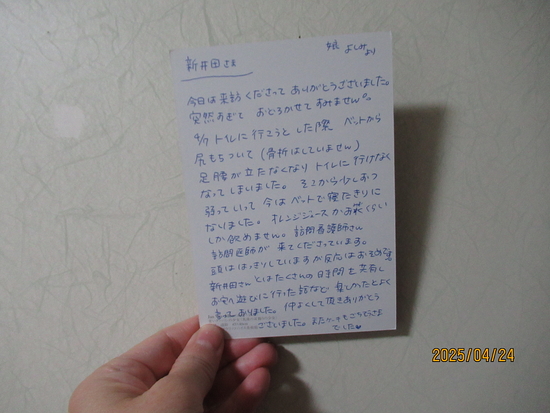 娘 よしみより
新井田さま
今日は来訪くださってありがとうございました。
突然すぎて おどろかせてすみません。
4/7 トイレに行こうとした際 ベットから
尻もちついて (骨折はしていません)
足腰が立たなくなりトイレに行けなく
なってしまいました。そこから少しずつ
弱っていって 今はベットで寝たきりに
なりました。オレンジジュースかお茶くらい
しか飲めません。訪問看護師さん
訪問医師が 来てくださっています。
頭ははっきりしていますが反応はおそめです
新井田さんとはたくさんの時間を共有し
お宅へ遊びに行った話など 楽しかったとよく
言っておりました。仲よくして頂きありがとう
ございました。
でした
2025/04/24